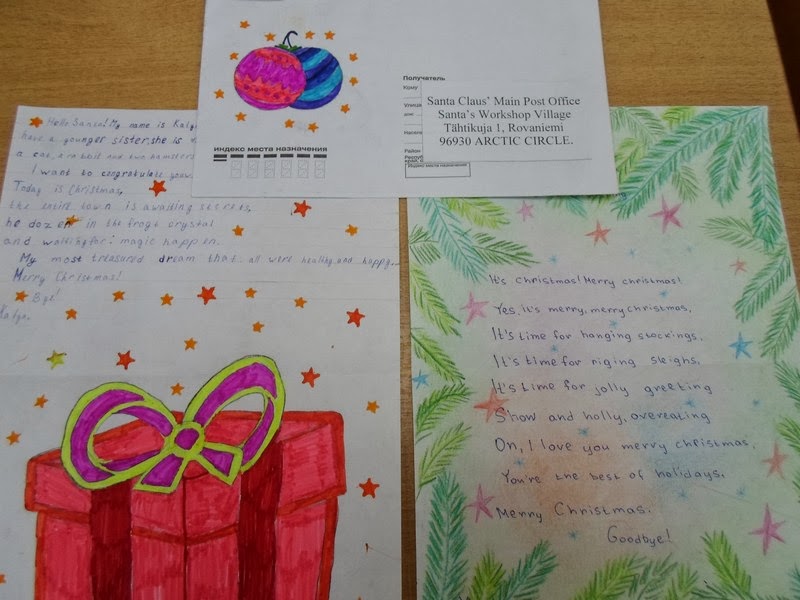 Получатель
Кому
Santa Claus' Main Post Office
Santa's Workshop Village
Tähtikuja 1, Rovaniemi
96930 ARCTIC CIRCLE.
Район
Индекс места назначения
индекс места назначения
Hello Santa! My name is
have a younger sister, she is
a cat, a rabbit and two hamsters
I want to congratulate
Today is Christmas,
the entire town is awaiting secrets,
he dozen in the frost crystal
and waiting for: magic happen.
My most treasured dream that all were healthy and happy.
Merry Christmas!
Bye!
It's christmas! Merry christmas!
Yes, it's merry, merry christmas,
It's time for hanging stockings,
It's time for riging sleighs,
It's time for jolly greeting
Show and holly, overeating
On, I love you merry christmas,
You're the best of holidays.
Merry Christmas.
Goodbye!